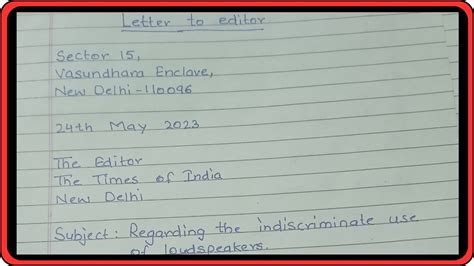 Letter to editor
Sector 15,
Vasundham Enclave,
New Delhi-110096
24th May 2023
The Editor
The Times of India
New Delhi
Subject: Regarding the indiscriminate use
of loudspeakers.